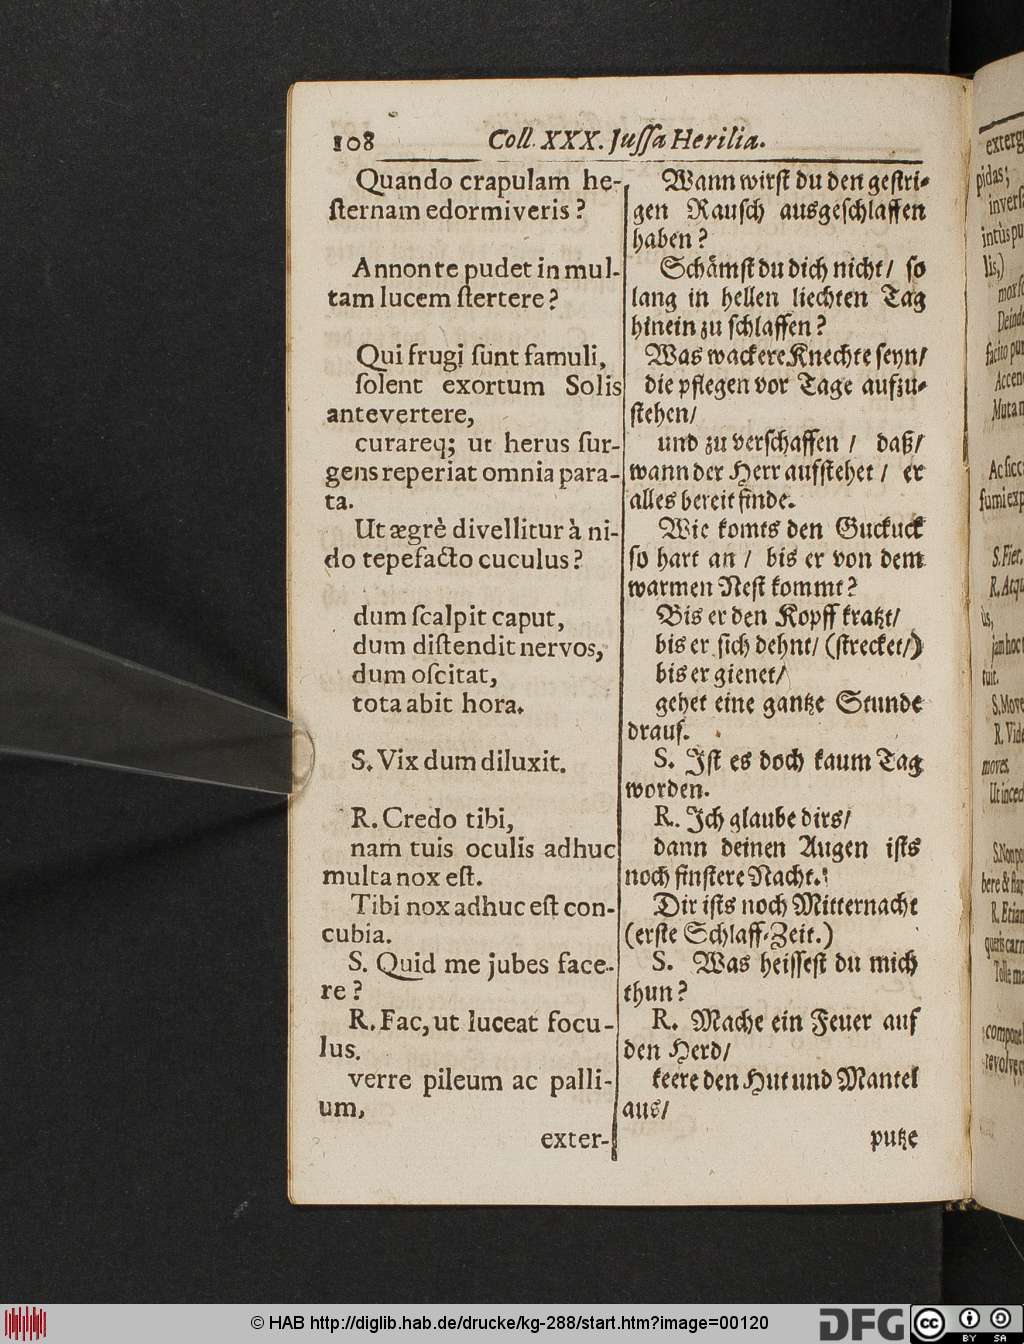 108 Coll. XXX. Juſſa Herilia.
Quando crapulam he-
ſternam edormiveris?
Annon te pudet in mul-
tam lucem ſtertere?
Qui frugi ſunt famuli,
ſolent exortum Solis
antevertere,
curareq; ut herus ſur-
gens reperiat omnia para-
ta.
Ut ægrè divellitur à ni-
do tepefacto cuculus?
dum ſcalpit caput,
dum diſtendit nervos,
dum oſcitat,
tota abit hora.
S. Vix dum diluxit.
R. Credo tibi,
nam tuis oculis adhuc
multa nox eſt.
Tibi nox adhuc eſt con-
cubia.
S. Quid me jubes face-
re?
R. Fac, ut luceat focu-
lus.
verre pileum ac palli-
um,
exter-
Wann wirſt du den geſtri-
gen Rauſch ausgeſchlaffen
haben?
Schämſt du dich nicht/ ſo
lang in hellen liechten Tag
hinein zu ſchlaffen?
Was wackere Knechte ſeyn/
die pflegen vor Tage aufzu-
ſtehen/
und zu verſchaffen / daß/
wann der Herr aufſtehet / er
alles bereit finde.
Wie komts den Guckuck
ſo hart an / bis er von dem
warmen Neſt kommt?
Bis er den Kopff kratzt/
bis er ſich dehnt/ (ſtrecket/)
bis er gienet/
gehet eine gantze Stunde
drauf.
S. Iſt es doch kaum Tag
worden.
R. Ich glaube dirs/
dann deinen Augen iſts
noch finſtere Nacht.
Dir iſts noch Mitternacht
(erſte Schlaff-Zeit.)
S. Was heiſſeſt du mich
thun?
R. Mache ein Feuer auf
den Herd/
keere den Hut und Mantel
aus/
putze
exterg
pidas;
inverſ
intùs pu
lis,)
mox ſ
Deinde
facito pu
Accen
Muta
Ac ſicc
fumi exp
S. Fiet.
R. Atqu
ùs,
jam hoc
tuit.
S. Move
R. Vid
mores.
Ut inced
S. Non po
bere & ſta
R. Etian
quæris car
Tolle m
compone
revolve
© HAB http://diglib.hab.de/drucke/kg-288/start.htm?image=00120
DFG
cc
BY SA